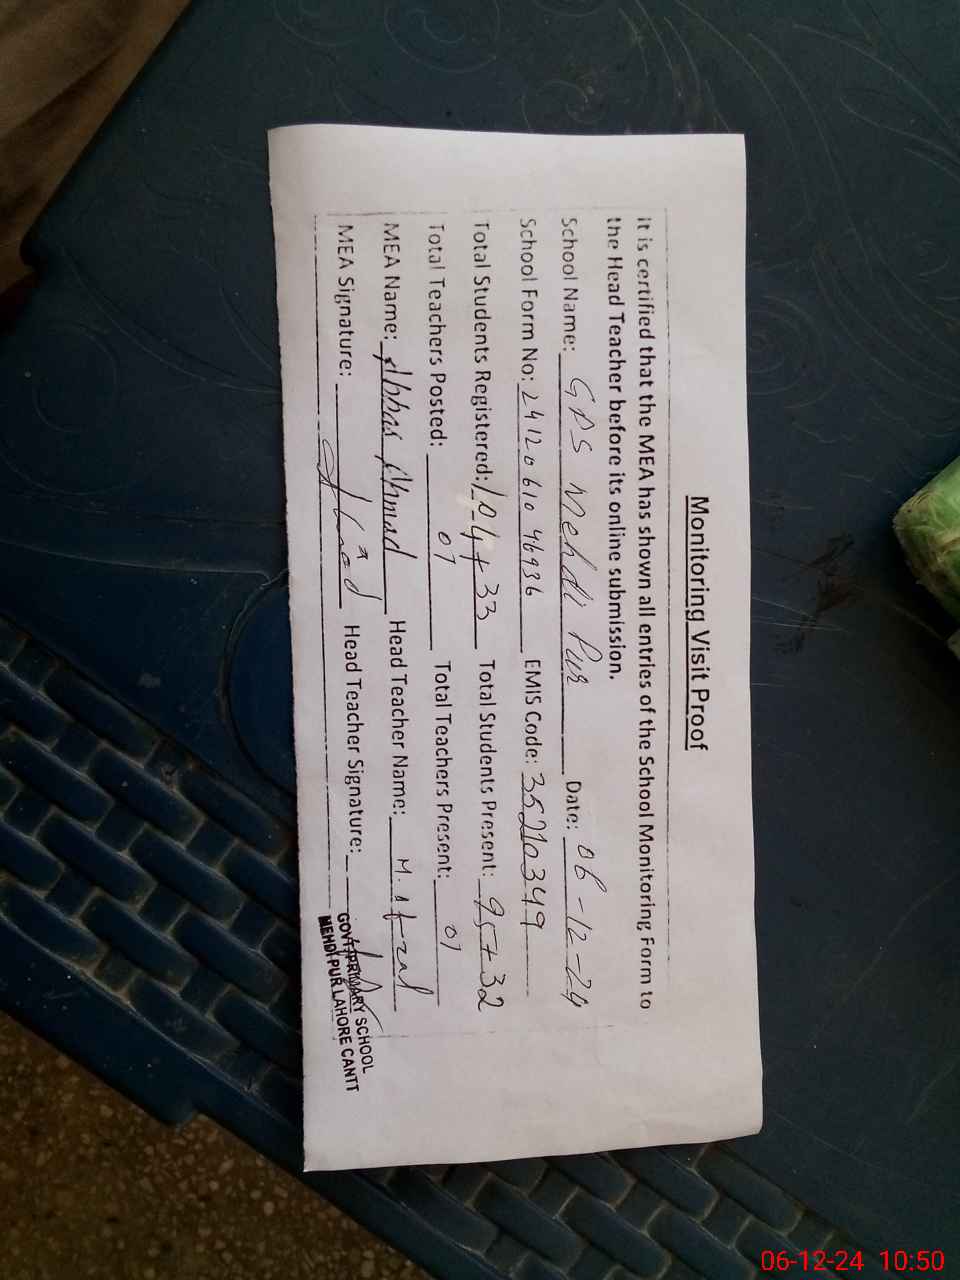 Monitoring Visit Proof
It is certified that the MEA has shown all entries of the School Monitoring Form to
the Head Teacher before its online submission.
School Name: GPS Mehdi Pur Date: 06-12-24
School Form No: 2412061046936 EMIS Code: 35210349
Total Students Registered: 104+33 Total Students Present: 95+32
Total Teachers Posted: 07 Total Teachers Present: 07
MEA Name: Abbas Ahmad Head Teacher Name: M. Afzal
MEA Signature: Head Teacher Signature:
GOVT. PRIMARY SCHOOL
MEHDI PUR LAHORE CANTT
06-12-24 10:50